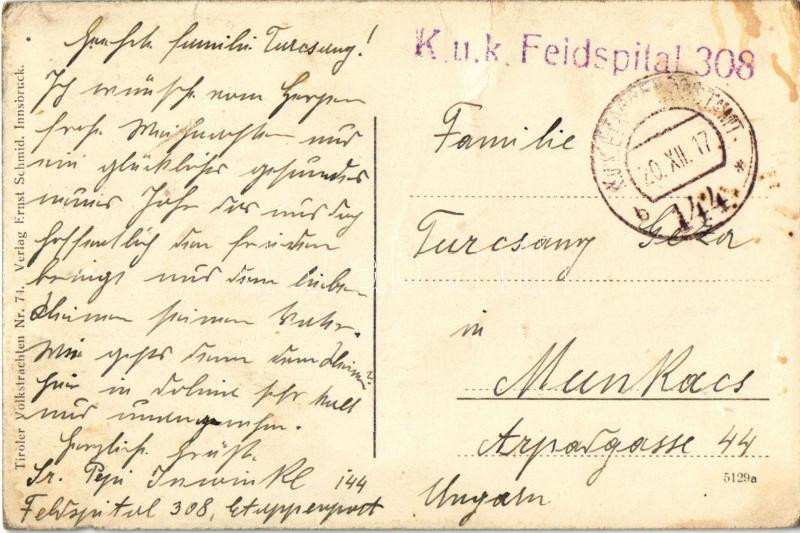 Geehrte Familie Turcsany!
Ich wünsche vom Herzen
frohe Weihnachten und
ein glückliches gesundes
neues Jahr das uns doch
hoffentlich den Frieden
bringt und dem lieben
Kleinen seinen Vater.
Wie gehts denn dem Kleinen?
hier in sehr kalt
und unangenehm.
Herzliche Grüße
Sr. Pepi 144
Feldspital 308, Etappenpost
K.u.k. Feldspital 308
K.u.K. ETAPPENPOSTAMT
20.XII.17
b 144 *
Familie
Turcsany Géza
in
Munkacs
Arpadgasse 44
Ungarn
5129a
Tiroler Volkstrachten Nr. 74. Verlag Ernst Schmid. Innsbruck.